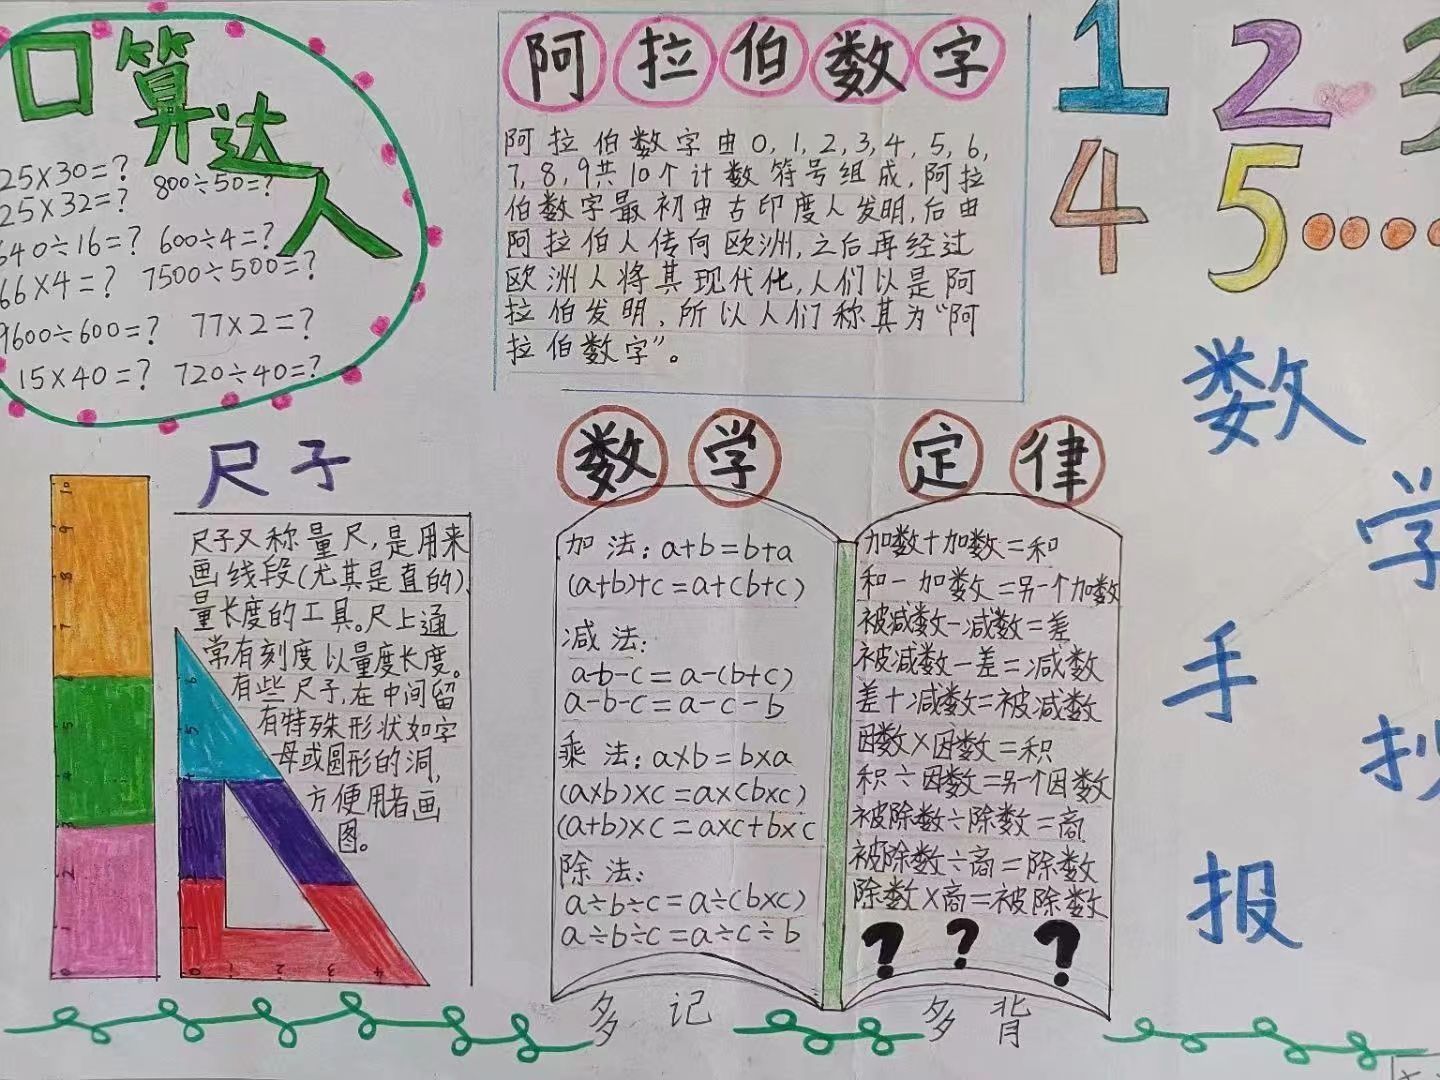 口算达人
25×30=?
25×32=? 800÷50=?
640÷16=? 600÷4=?
66×4=? 7500÷500=?
9600÷600=? 77×2=?
15×40=? 720÷40=?
阿拉伯数字
阿拉伯数字由0,1,2,3,4,5,6,
7,8,9共10个计数符号组成,阿拉
伯数字最初由古印度人发明,后由
阿拉伯人传向欧洲,之后再经过
欧洲人将其现代化,人们以是阿
拉伯发明,所以人们称其为“阿
拉伯数字”。
1 2 3
4 5
数学手抄报
尺子
10
9
8
7
5
4
3
2
1
0
尺子又称量尺,是用来
画线段(尤其是直的)、
量长度的工具。尺上通
常有刻度以量度长度。
有些尺子,在中间留
有特殊形状如字
母或圆形的洞,
方便用者画
图。
6
5
0 1 2 3 4
数学定律
加法:a+b=b+a
(a+b)+c=a+(b+c)
减法:
a-b-c=a-(b+c)
a-b-c=a-c-b
乘法:a×b=b×a
(a×b)×c=a×(b×c)
(a+b)×c=a×c+b×c
除法:
a÷b÷c=a÷(b×c)
a÷b÷c=a÷c÷b
加数+加数=和
和-加数=另一个加数
被减数-减数=差
被减数-差=减数
差+减数=被减数
因数×因数=积
积÷因数=另一个因数
被除数÷除数=商
被除数÷商=除数
除数×商=被除数
? ? ?
多记
多背